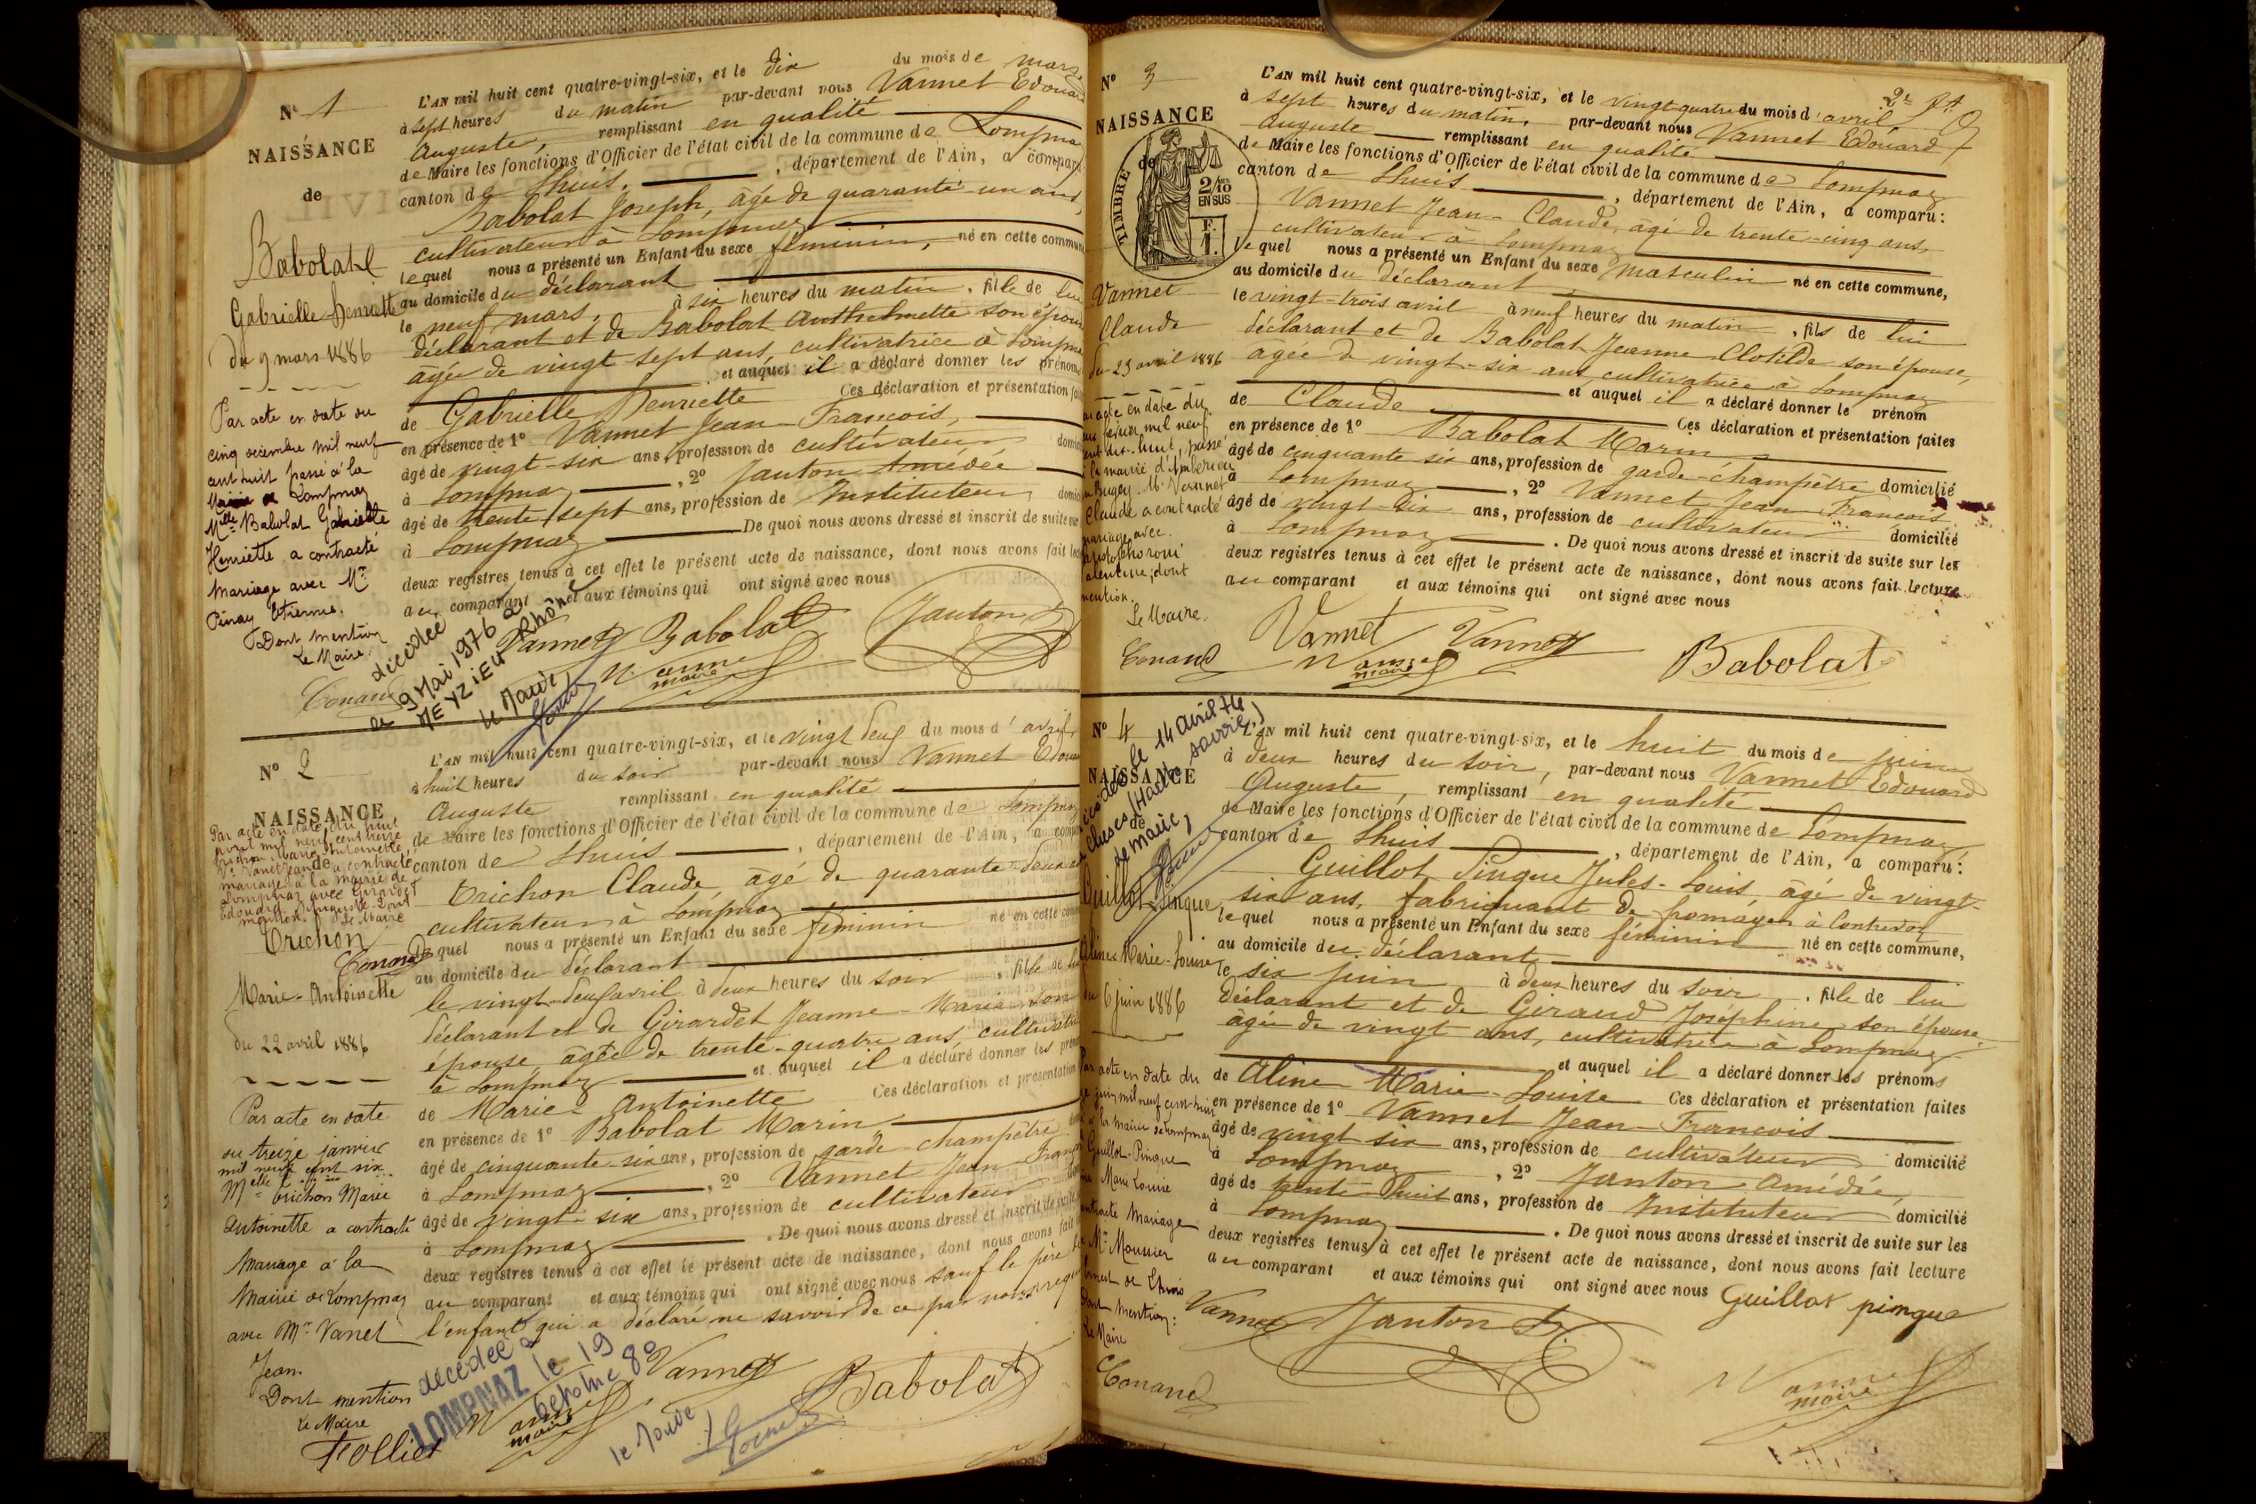 N° 1
NAISSANCE
de
Babolat
Gabrielle Henriette
du 9 mars 1886
Par acte en date du
cinq décembre mil neuf
cent huit passé à la
Mairie de Lompnaz
Mlle Babolat Gabrielle
Henriette a contracté
mariage avec Mr
Pinay Etienne.
Dont mention
Le Maire.
L'AN mil huit cent quatre-vingt-six, et le dix du mois de mars
à sept heures du matin par-devant nous Vannet Edouard
Auguste, remplissant en qualité
de Maire les fonctions d'Officier de l'état civil de la commune de Lompna
canton de Lhuis, département de l'Ain, a comparu
Babolat Joseph, âgé de quarante-un ans,
cultivateur à Lompnaz
lequel nous a présenté un Enfant du sexe féminin, né en cette commune
au domicile du déclarant
le neuf mars, à six heures du matin, fille de lui
déclarant et de Babolat Anthelmette son épouse
âgée de vingt-sept ans, cultivatrice à Lompna
et auquel il a déclaré donner les prénoms
de Gabrielle Henriette Ces déclaration et présentation
en présence de 1° Vannet Jean-François,
âgé de vingt-six ans, profession de cultivateur
à Lompnaz, 2° Janton Amédée
âgé de trente-sept ans, profession de Instituteur
à Lompnaz De quoi nous avons dressé et inscrit de suite
deux registres tenus à cet effet le présent acte de naissance, dont nous avons fait
au comparant et aux témoins qui ont signé avec nous
Vannet Babolat Janton
maire
décédée à
le 9 Mai 1976
MEYZIEU Rhône
le Maire,
N° 2
NAISSANCE
de
Trichon
Marie-Antoinette
du 22 avril 1886
Par acte en date
du treize janvier
mil neuf cent six
Melle Trichon Marie
Antoinette a contracté
Mariage à la
Mairie de Lompnaz
avec Mr Vanet
Jean.
Dont mention
Le Maire
L'AN mil huit cent quatre-vingt-six, et le vingt deux du mois d'avril
à huit heures du soir par-devant nous Vannet Edouard
Auguste remplissant en qualité
de Maire les fonctions d'Officier de l'état civil de la commune de Lompnaz
canton de Lhuis, département de l'Ain, a comparu
Trichon Claude, âgé de quarante-deux
cultivateur à Lompnaz
lequel nous a présenté un Enfant du sexe féminin né en cette
au domicile du déclarant
le vingt-deux avril à deux heures du soir, fille de lui
déclarant et de Girardet Jeanne-Marie son
épouse âgée de trente-quatre ans, cultivatrice
à Lompnaz et auquel il a déclaré donner les
de Marie-Antoinette Ces déclaration et présentation
en présence de 1° Babolat Marin
âgé de cinquante-six ans, profession de garde-champêtre
à Lompnaz, 2° Vannet Jean François
âgé de vingt-six ans, profession de cultivateur
à Lompnaz. De quoi nous avons dressé et inscrit de suite
deux registres tenus à cet effet le présent acte de naissance, dont nous avons fait
au comparant et aux témoins qui ont signé avec nous sauf le père de
l'enfant qui a déclaré ne savoir de ce par nous requis
Vannet
Babolat
maire
décédée à
LOMPNAZ le 19
le Maire
N° 3
NAISSANCE
de
TIMBRE
2/10 EN SUS
Vannet
Claude
du 23 avril 1886
mil neuf
cent dix-huit, passé
à la mairie d'Ambérieu
en Bugey Mr Vannet
Claude a contracté
mariage avec
dont
mention.
Le Maire.
L'AN mil huit cent quatre-vingt-six, et le vingt-quatre du mois d'avril
à sept heures du matin, par-devant nous Vannet Edouard
Auguste remplissant en qualité
de Maire les fonctions d'Officier de l'état civil de la commune de Lompnaz
canton de Lhuis, département de l'Ain, a comparu:
Vannet Jean-Claude, âgé de trente-cinq ans,
cultivateur à Lompnaz
lequel nous a présenté un Enfant du sexe masculin né en cette commune,
au domicile du déclarant
le vingt-trois avril à neuf heures du matin, fils de lui
déclarant et de Babolat Jeanne Clotilde son épouse,
âgée de vingt-six ans cultivatrice à Lompnaz
et auquel il a déclaré donner le prénom
de Claude Ces déclaration et présentation faites
en présence de 1° Babolat Marin
âgé de cinquante six ans, profession de garde-champêtre domicilié
à Lompnaz, 2° Vannet Jean François
âgé de vingt-six ans, profession de cultivateur domicilié
à Lompnaz. De quoi nous avons dressé et inscrit de suite sur les
deux registres tenus à cet effet le présent acte de naissance, dont nous avons fait lecture
au comparant et aux témoins qui ont signé avec nous
Vannet Vannet
Babolat
maire
N° 4
NAISSANCE
de
Guillot-Pingue
Aline Marie-Louise
du 6 juin 1886
décédée le 14 avril 74
à Cluses (Haute Savoie)
le maire,
Par acte en date du
à la mairie de Lompnaz
Guillot-Pingue
Marie Louise
contracté Mariage
Mr Mounier
Dont mention:
Le Maire
L'AN mil huit cent quatre-vingt-six, et le huit du mois de juin
à deux heures du soir, par-devant nous Vannet Edouard
Auguste, remplissant en qualité
de Maire les fonctions d'Officier de l'état civil de la commune de Lompnaz
canton de Lhuis, département de l'Ain, a comparu:
Guillot Pingue Jules-Louis, âgé de vingt-
six ans, fabriquant de fromages à Contrevoz
lequel nous a présenté un Enfant du sexe féminin né en cette commune,
au domicile du déclarant
le six juin à deux heures du soir, fille de lui
déclarant et de Giraud Joséphine son épouse,
âgée de vingt ans, cultivatrice à Lompnaz
et auquel il a déclaré donner les prénoms
de Aline Marie-Louise Ces déclaration et présentation faites
en présence de 1° Vannet Jean-François
âgé de vingt six ans, profession de cultivateur domicilié
à Lompnaz, 2° Janton Amédée,
âgé de trente-huit ans, profession de Instituteur domicilié
à Lompnaz. De quoi nous avons dressé et inscrit de suite sur les
deux registres tenus à cet effet le présent acte de naissance, dont nous avons fait lecture
au comparant et aux témoins qui ont signé avec nous Guillot pingue
Vannet Janton
maire